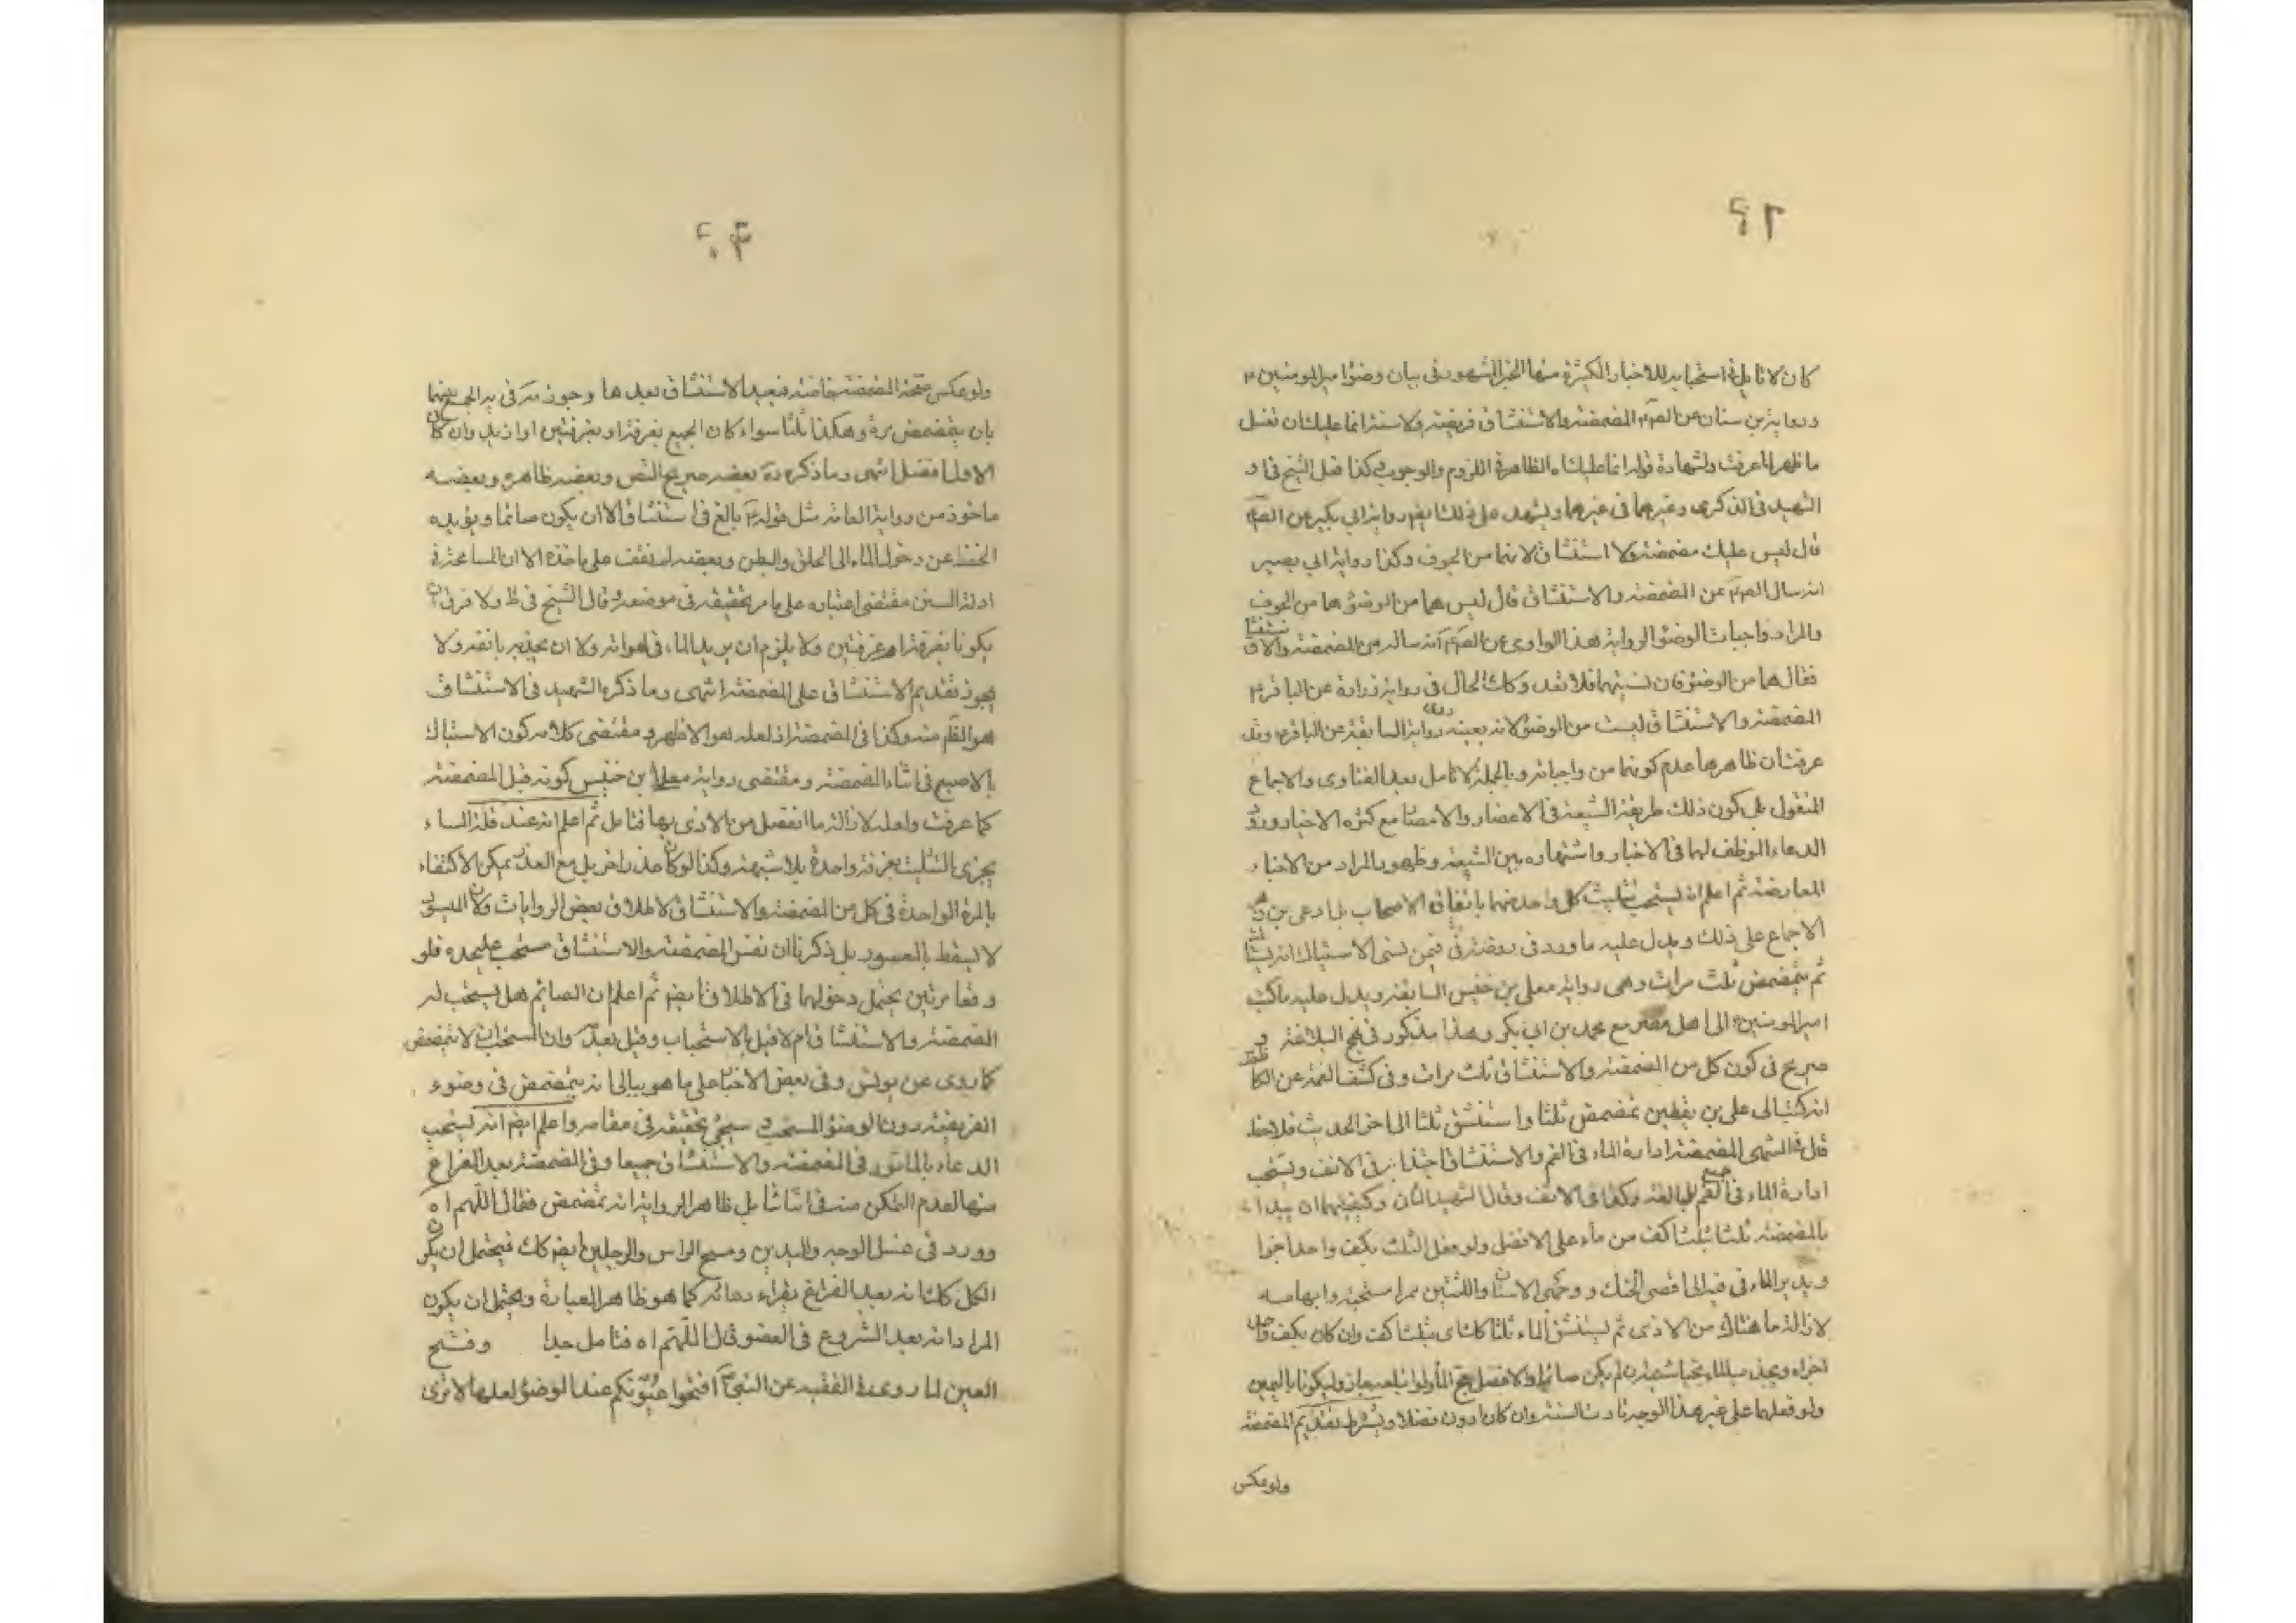 كان لا تامل في استحبابه للاخبار الكثيرة منها الخبر المشهور في بيان وضوء امير المومنين ع
ورواية بن سنان عن الصم المضمضة والاستنشاق فريضة ولا سنة انما عليك ان تغسل
ما ظهر لما عرفت ولشهادة قوله انما عليك اه الظاهرة في اللزوم والوجوب وكذا فعل الشيخ في
الشهيد في الذكرى وغيرهما في غيرهما ويشهد على ذلك ايضم رواية ابي بكير عن الصم
قال ليس عليك مضمضة ولا استنشاق لانهما من الجوف وكذا رواية ابي بصير
انه سال الصم عن المضمضة والاستنشاق قال ليس هما من الوضوء هما من الجوف
والمراد واجبات الوضوء لرواية هذا الراوى عن الصم انه ساله عن المضمضة والاستنشاق
فقال هما من الوضوء فان نسيتهما فلا تعد وكك الحال في رواية زرارة عن الباقر ع
المضمضة والاستنشاق ليست من الوضوء لانه بعينه رواية السابقة عن الباقر وقد
عرفت ان ظاهرها عدم كونهما من واجباته وبالجملة لا تامل بعد الفتاوى والاجماع
المنقول بل كون ذلك طريقة الشيعة في الاعصار والامصار مع كثرة الاخبار وورود
الدعاء الموظف لها في الاخبار واشتهاره بين الشيعة وظهور المراد من الاخبار
المعارضة ثم اعلم انه يستحب تثليث كل واحد منهما باتفاق الاصحاب بل ادعى بن زهرة
الاجماع على ذلك ويدل عليه ما ورد في فيمن نسى الاستياك انه يستاك
ثم يتمضمض ثلث مرات وهى رواية معلى بن خنيس السابقة ويدل عليه ما كتب
امير المومنين ع الى اهل مصر مع محمد بن ابي بكر وهذا مذكور في نهج البلاغة و
صريح في كون كل من المضمضة والاستنشاق ثلث مرات وفى كشف الغمة عن الكاظم
انه كتب الى على بن يقطين تمضمض ثلثا واستنشق ثلثا الى اخر الحديث فلاحظ
قال في المنتهى المضمضة ادارة الماء في الفم والاستنشاق اجتذابه في الانف ويستحب
ادارة الماء في جميع الفم للمبالغة وكذا في الانف وقال الشهيد الثان وكيفيتهما ان يبدا
بالمضمضة ثلثا بثلث اكف من ماء على الافضل ولو فعل الثلث بكف واحد اجزا
ويدير الماء في فيه الى اقصى الحنك ووجهى الاسنان واللثتين ممرا مسبحته وابهامه
لازالة ما هناك من الاذى ثم يستنشق الماء ثلثا كك اى بثلث اكف وان كان بكف واحد
اجزاه ويجذب الماء بخياشيمه ان لم يكن صائما والافضل مج الماء ولو ابتلعه جاز وليكونا باليمين
ولو فعلهما على غير هذا الوجه تادت السنة وان كان ادون فضلا ويشترط تقديم المضمضة
ولو عكس
ولو عكس صحت المضمضة خاصة فيعيد الاستنشاق بعدها وجوز مه في ية الجمع بينهما
بان يتمضمض مرة وهكذا ثلثا سواء كان الجميع بغرفة او بغرفتين او ازيد وان كان
الاول افضل انتهى وما ذكره ره بعضه صريح النص وبعضه ظاهره وبعضه
ماخوذ من رواية العامة مثل قوله ع بالغ في استنشاق الا ان يكون صائما ويؤيده
الحفظ عن دخول الماء الى الحلق والبطن وبعضه لم نقف على ماخذه الا ان المسامحة في
ادلة السنن مقتضى اعتباره على ما مر تحقيقه في موضعه وقال الشيخ في ط ولا فرق ان
يكونا بغرفة او غرفتين ولا يلزم ان يدير الماء في لهواته ولا ان يجذبه بانفه ولا
يجوز تقديم الاستنشاق على المضمضة انتهى وما ذكره الشهيد في الاستنشاق
هو الظم منه وكذا في المضمضة اذ لعله هو الاظهر ومقتضى كلامه كون الاستياك
بالاصبع في اثناء المضمضة ومقتضى رواية معلى بن خنيس كونه قبل المضمضة
كما عرفت ولعله لازالة ما انفصل من الاذى بها فتامل ثم اعلم انه عند قلة الماء
يجزى بالتثليث بغرفة واحدة بلا شبهة وكذا لو كان عذر اخر بل مع العذر يمكن الاكتفاء
بالمرة الواحدة في كل من المضمضة والاستنشاق لاطلاق بعض الروايات ولان الميسور
لا يسقط بالمعسور بل ذكرنا ان نفس المضمضة والاستنشاق مستحب عليحده فلو
وقعا مرتين يحتمل دخولهما في الاطلاق ايضم ثم اعلم ان الصائم هل يستحب له
المضمضة والاستنشاق ام لا قيل بالاستحباب وقيل بعدمه وان المستحب ان لا يتمضمض
كما روى عن يونس وفى بعض الاخبار على ما هو ببالى انه يتمضمض في وضوء
الفريضة دون الوضوء المستحب وسيجئ تحقيقه في مقامه واعلم ايضم انه يستحب
الدعاء بالماثور في المضمضة والاستنشاق جميعا وفى المضمضة بعد الفراغ
منها لعدم التمكن منه في اثنائها بل ظاهر الرواية انه تمضمض فقال اللهم اه
وورد في غسل الوجه واليدين ومسح الراس والرجلين ايضم كك فيحتمل ان يكون
الكل كك انه بعد الفراغ بقراءة دعائه كما هو ظاهر العبارة ويحتمل ان يكون
المراد انه بعد الشروع في العضو قال اللهم اه فتامل جدا وفتح
العين لما روى في الفقيه عن النبي ص افتحوا عيونكم عند الوضوء لعلها لا ترى